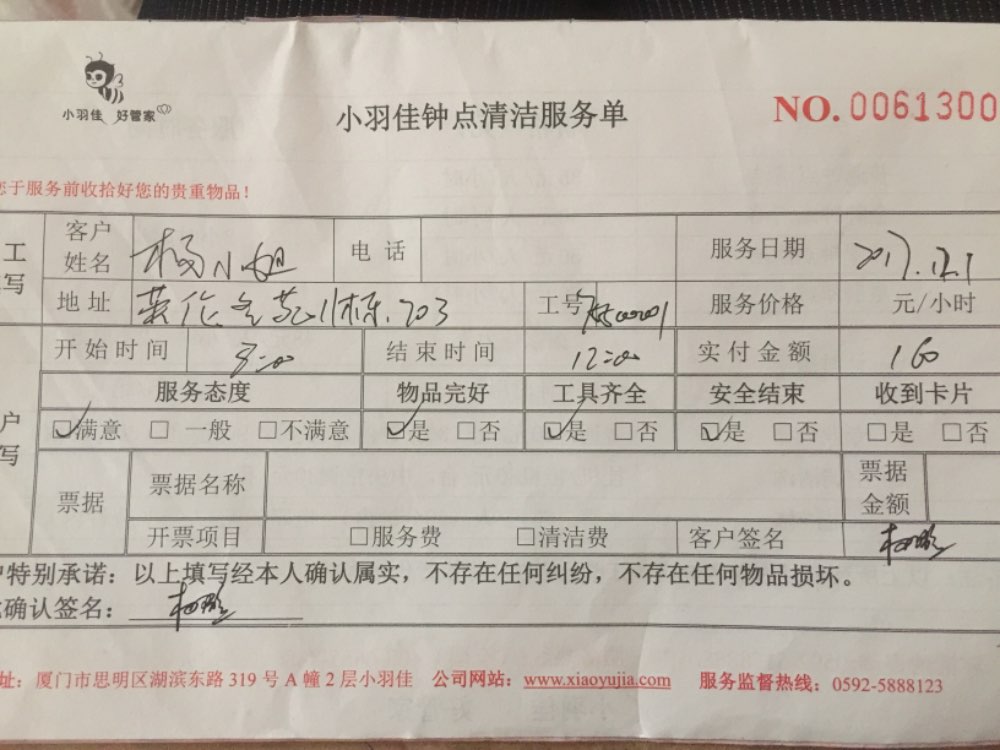 小羽佳 好管家
小羽佳钟点清洁服务单
NO.0061300
您于服务前收拾好您的贵重物品！
工
写
客户姓名 杨小姐 电话 服务日期 2017.12.1
地址 英伦名苑11栋.703 工号 服务价格 元/小时
户
写
开始时间 8:00 结束时间 12:00 实付金额 160
服务态度 物品完好 工具齐全 安全结束 收到卡片
☑满意 □一般 □不满意 ☑是 □否 ☑是 □否 ☑是 □否 □是 □否
票据 票据名称 票据金额
开票项目 □服务费 □清洁费 客户签名
户特别承诺：以上填写经本人确认属实，不存在任何纠纷，不存在任何物品损坏。
确认签名：
址：厦门市思明区湖滨东路 319 号 A 幢 2 层小羽佳 公司网站：www.xiaoyujia.com 服务监督热线：0592-5888123